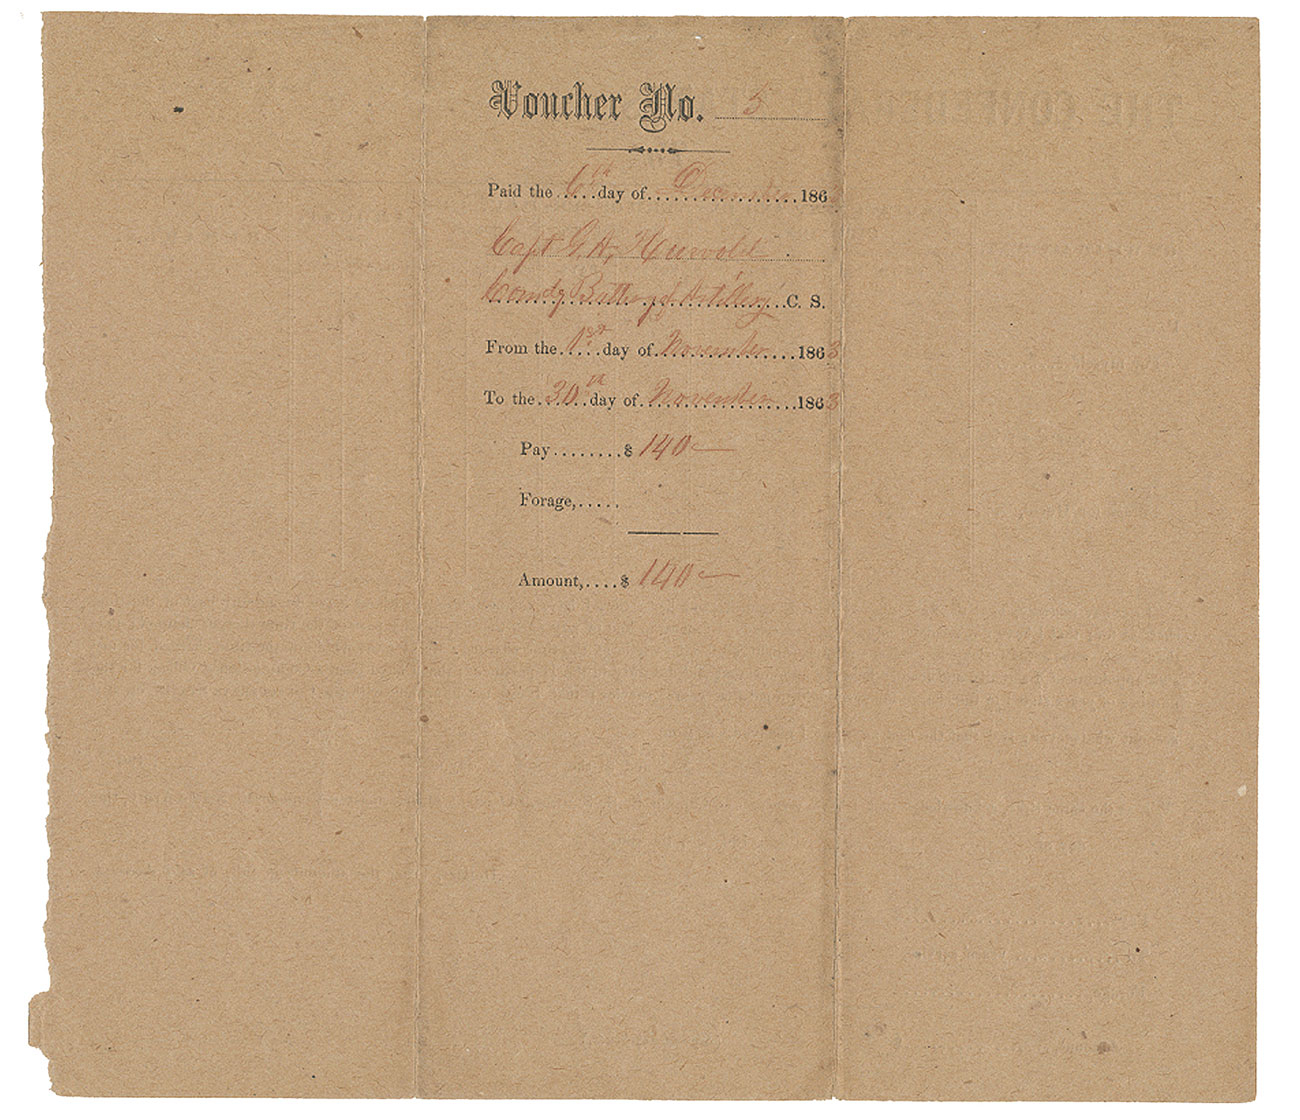 Voucher No. 5
Paid the 6th day of December 1863
Capt G. A. Huwald
Comdg Battery of Artillery C. S.
From the 1st day of November 1863
To the 30th day of November 1863
Pay........$ 140
Forage,.....
Amount,....$ 140